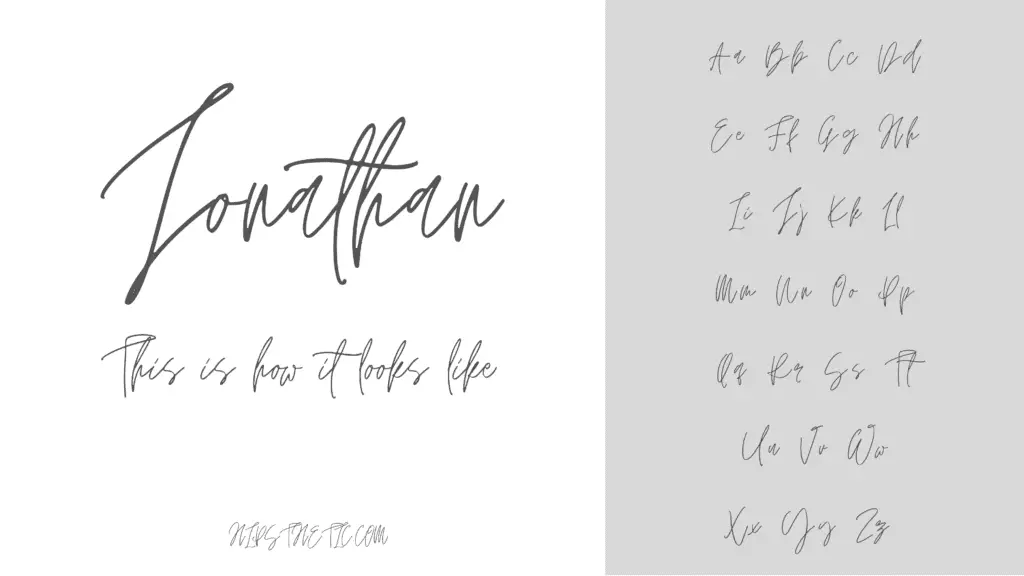 Jonathan
This is how it looks like
HIPSTHETIC.COM
Aa Bb Cc Dd
Ee Ff Gg Hh
Ii Jj Kk Ll
Mm Nn Oo Pp
Qq Rr Ss Tt
Uu Vv Ww
Xx Yy Zz